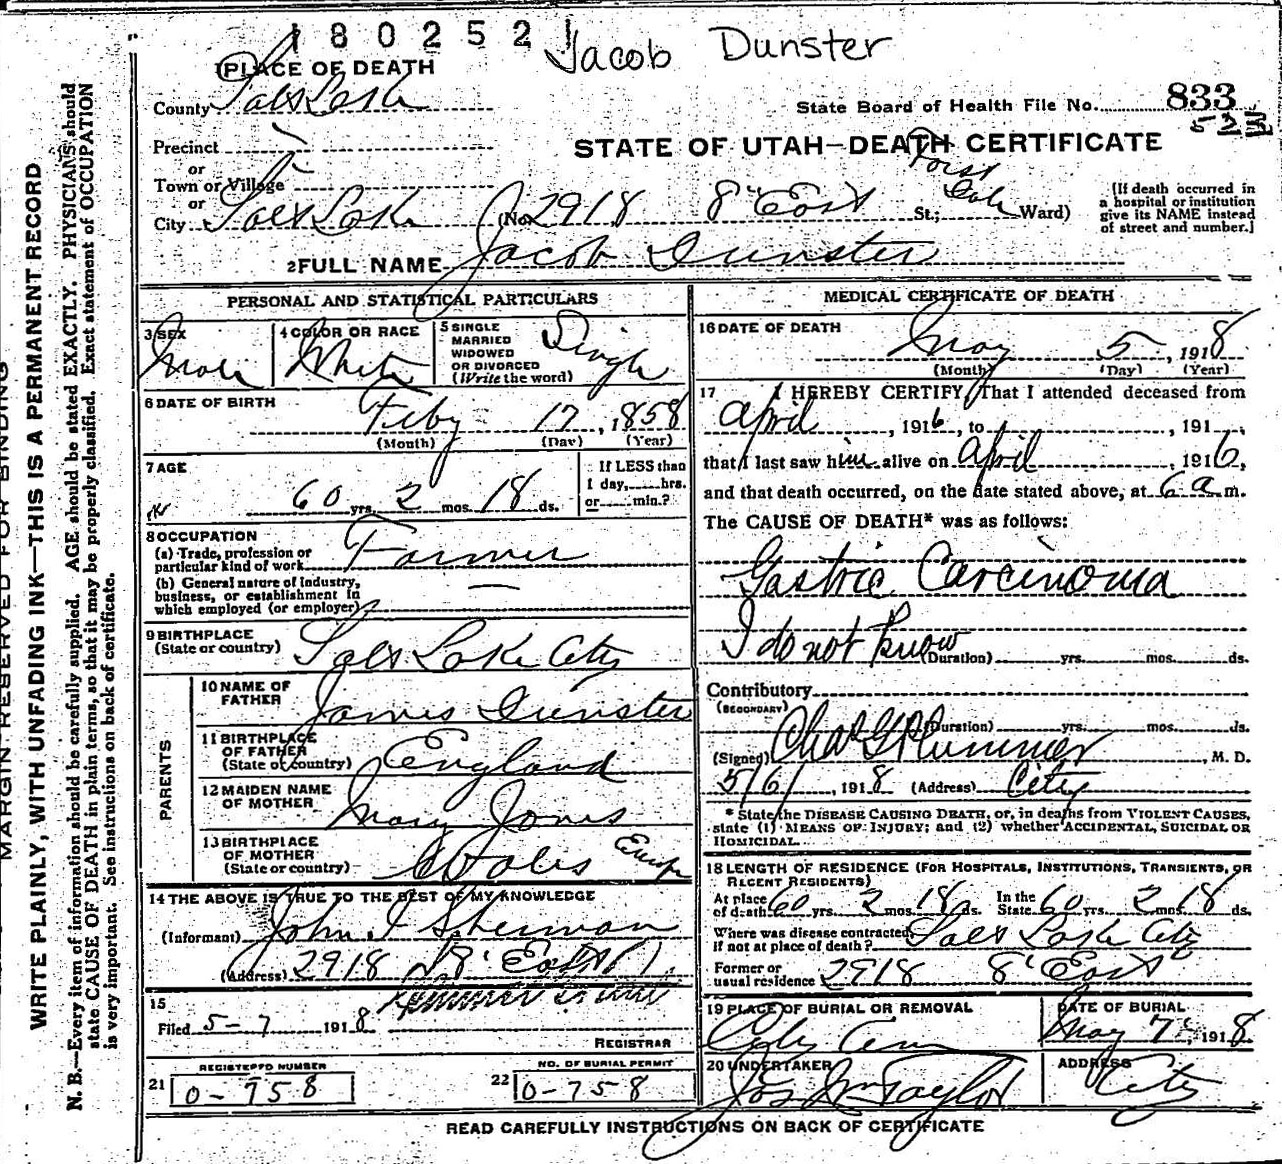 1802521
Jacob Dunster
PLACE OF DEATH
County Salt Lake
State Board of Health File No. 833
Precinct
or
Town or Village
or
STATE OF UTAH—DEATH CERTIFICATE
City Salt Lake (No. 2918 8' East St.; Ward)
(If death occurred in
a hospital or institution
give its NAME instead
of street and number.]
2 FULL NAME Jacob Dunster
MARGIN RESERVED FOR BINDING
WRITE PLAINLY, WITH UNFADING INK—THIS IS A PERMANENT RECORD
N. B.—Every item of information should be carefully supplied. AGE should be stated EXACTLY. PHYSICIANS should
state CAUSE OF DEATH in plain terms, so that it may be properly classified. Exact statement of OCCUPATION
is very important. See instructions on back of certificate.
PERSONAL AND STATISTICAL PARTICULARS
3 SEX
Male
4 COLOR OR RACE
White
5 SINGLE
MARRIED
WIDOWED
OR DIVORCED
(Write the word)
Single
6 DATE OF BIRTH
Feby 17, 1858
(Month) (Day) (Year)
7 AGE
60 yrs. 2 mos. 18 ds.
If LESS than
1 day, hrs.
or min.?
8 OCCUPATION
(a) Trade, profession or
particular kind of work Farmer
(b) General nature of industry,
business, or establishment in
which employed (or employer) —
9 BIRTHPLACE
(State or country) Salt Lake City
PARENTS
10 NAME OF
FATHER James Dunster
11 BIRTHPLACE
OF FATHER
(State or country) England
12 MAIDEN NAME
OF MOTHER Mary Jones
13 BIRTHPLACE
OF MOTHER
(State or country) Wales Europe
14 THE ABOVE IS TRUE TO THE BEST OF MY KNOWLEDGE
(Informant) John J Sherman
(Address) 2918 8' East
15
Filed 5-7 1918
REGISTRAR
REGISTERED NUMBER
21 0-758
NO. OF BURIAL PERMIT
22 0-758
MEDICAL CERTIFICATE OF DEATH
16 DATE OF DEATH
May 5, 1918
(Month) (Day) (Year)
17 I HEREBY CERTIFY, That I attended deceased from
April, 1916, to , 191
that I last saw him alive on April, 1916,
and that death occurred, on the date stated above, at 6 a m.
The CAUSE OF DEATH* was as follows:
Gastric Carcinoma
I do not know (Duration) yrs. mos. ds.
Contributory
(SECONDARY)
(Duration) yrs. mos. ds.
(Signed) Chas G Plummer, M. D.
5/6/, 1918 (Address) City
* State the DISEASE CAUSING DEATH, or, in deaths from VIOLENT CAUSES,
state (1) MEANS OF INJURY; and (2) whether ACCIDENTAL, SUICIDAL OR
HOMICIDAL.
18 LENGTH OF RESIDENCE (FOR HOSPITALS, INSTITUTIONS, TRANSIENTS, OR
RECENT RESIDENTS)
At place of death 60 yrs. 2 mos. 18 ds. In the State 60 yrs. 2 mos. 18 ds.
Where was disease contracted,
if not at place of death? Salt Lake City
Former or
usual residence 2918 8' East
19 PLACE OF BURIAL OR REMOVAL
City Cem
DATE OF BURIAL
May 7, 1918
20 UNDERTAKER
Jos Wm Taylor
ADDRESS
City
READ CAREFULLY INSTRUCTIONS ON BACK OF CERTIFICATE